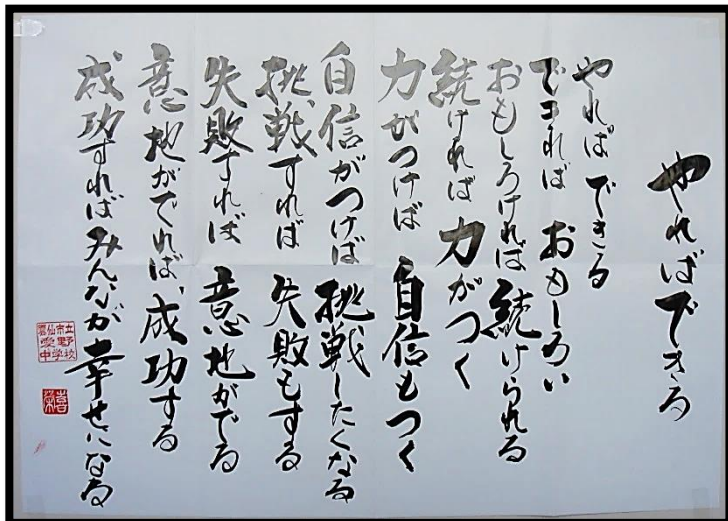 やればできる
やれば できる
できれば おもしろい
おもしろければ 続けられる
続ければ 力がつく
力がつけば 自信もつく
自信がつけば 挑戦したくなる
挑戦すれば 失敗もする
失敗すれば 意地がでる
意地がでれば、成功する
成功すればみんなが幸せになる